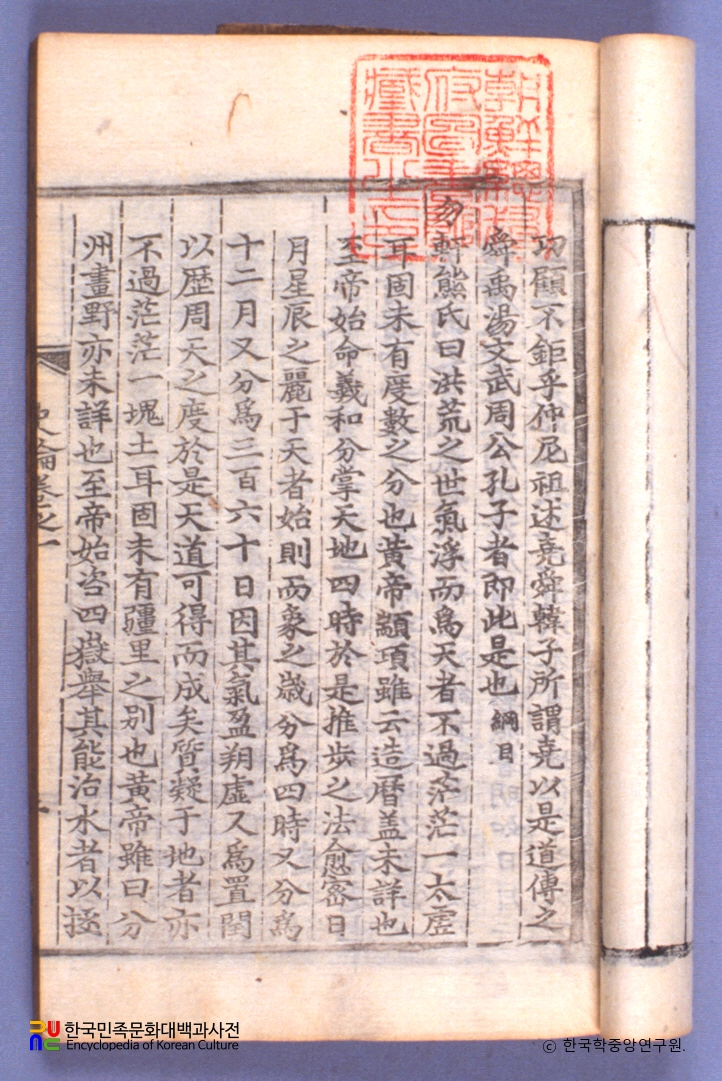 朝鮮總督
府圖書館
藏書之印
功顧不鉅乎仲尼祖述堯舜韓子所謂堯以是道傳之
舜禹湯文武周公孔子者即此是也 綱目
勿軒熊氏曰洪荒之世氣浮而爲天者不過茫茫一太虛
耳固未有度數之分也黃帝顓頊雖云造曆盖未詳也
至帝始命羲和分掌天地四時於是推步之法愈密日
月星辰之麗于天者始則而象之歲分爲四時又分爲
十二月又分爲三百六十日因其氣盈朔虛又爲置閏
以歷周天之度於是天道可得而成矣質疑于地者亦
不過茫茫一塊土耳固未有疆里之別也黃帝雖曰分
州畫野亦未詳也至帝始咨四嶽舉其能治水者以拯
史論卷之一
한국민족문화대백과사전
Encyclopedia of Korean Culture
ⓒ 한국학중앙연구원.